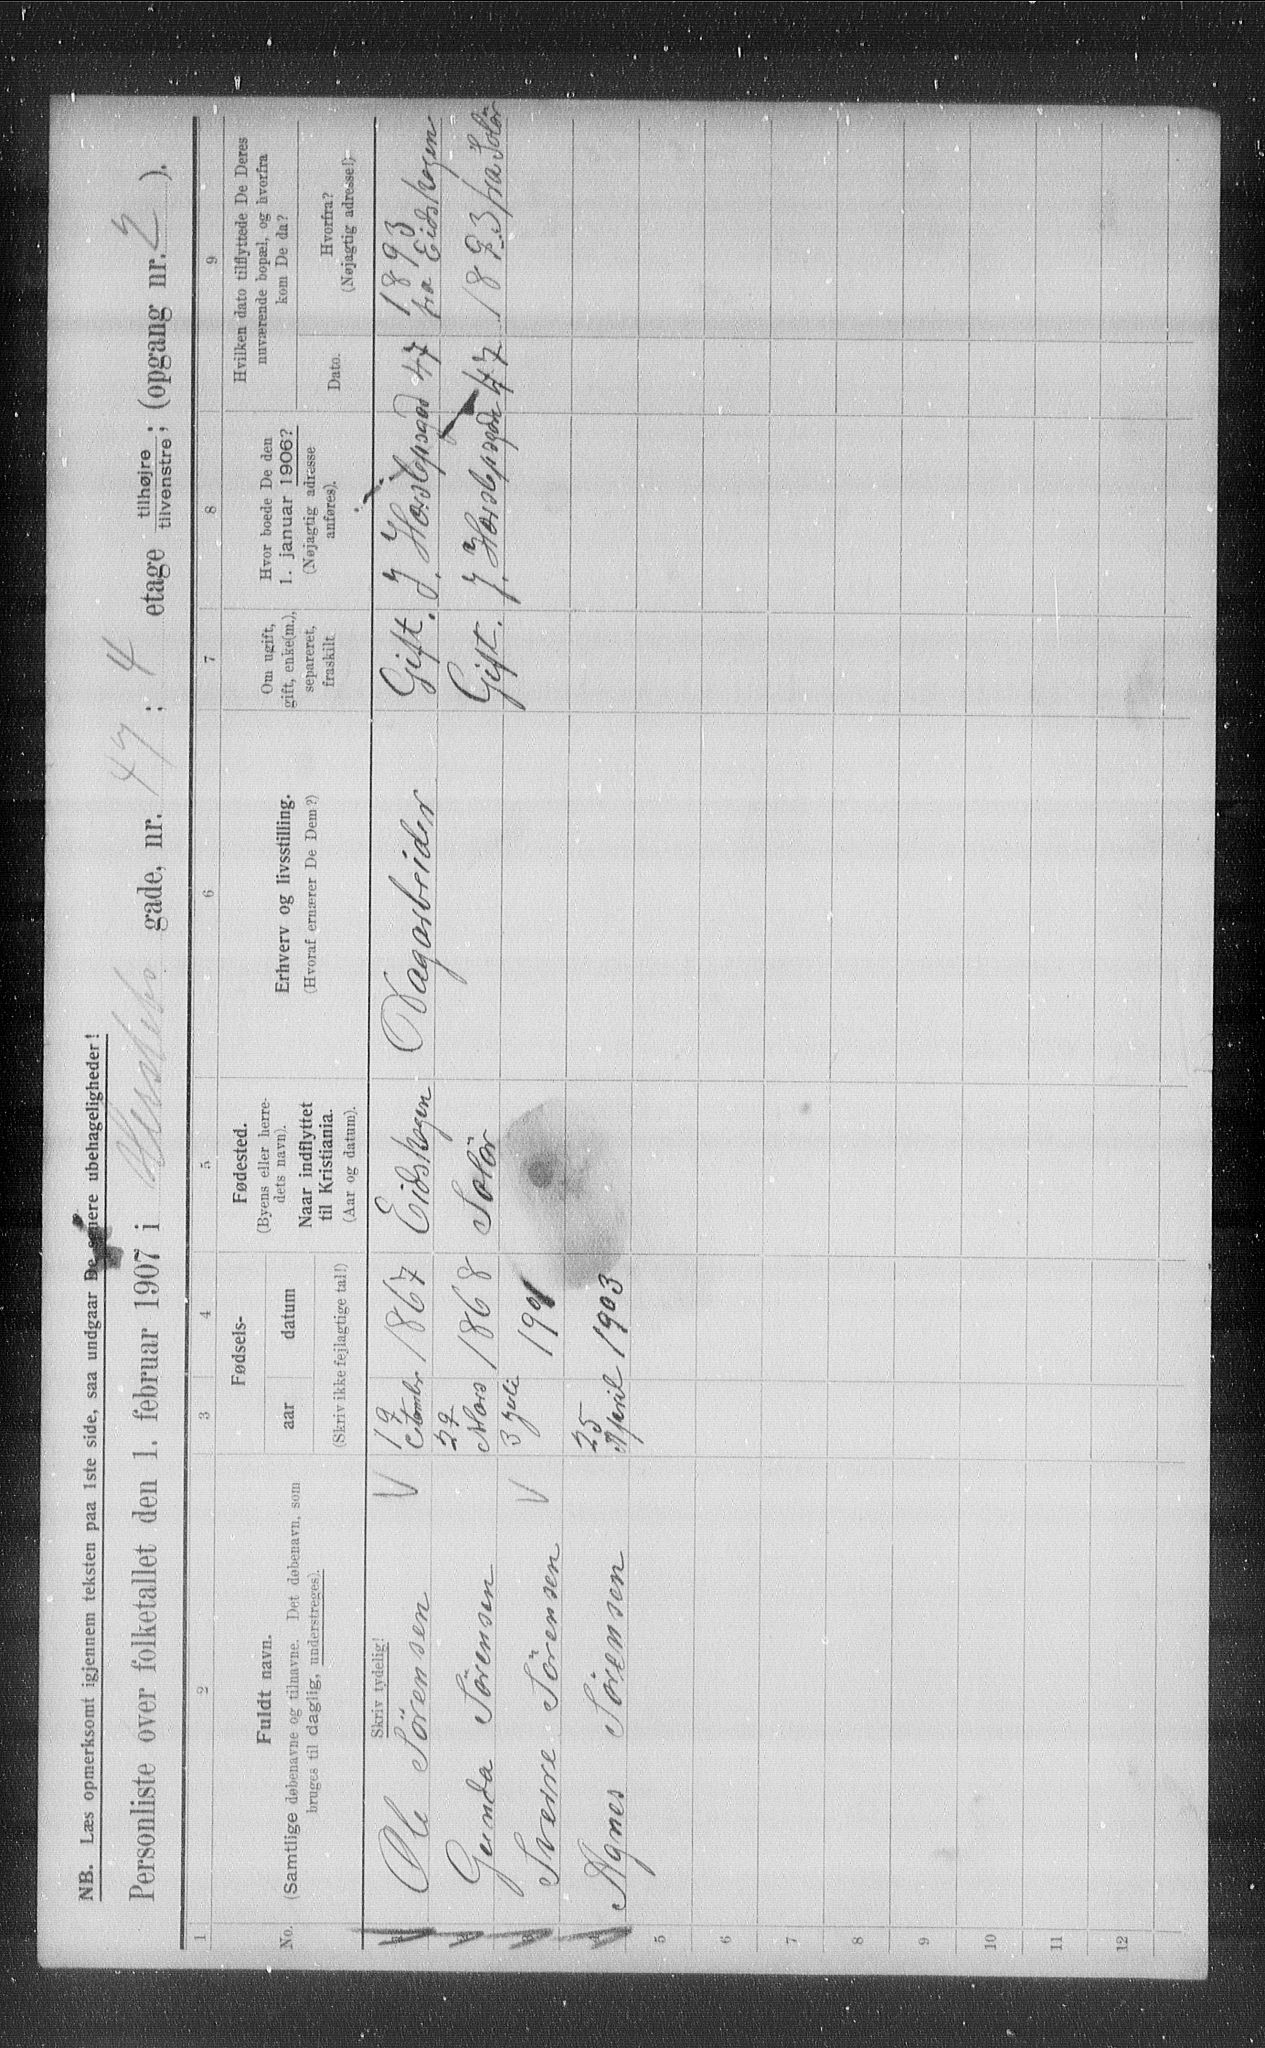 NB. Læs opmerksomt igjennem teksten paa 1ste side, saa undgaar De senere ubehageligheder!
Personliste over folketallet den 1. februar 1907 i Herslebs gade, nr. 47; 4 etage tilhøjre tilvenstre; (opgang nr. 2).
1 2 3 4 5 6 7 8 9
No.
Fuldt navn.
(Samtlige døbenavne og tilnavne. Det døbenavn, som
bruges til daglig, understreges).
Fødsels-
aar datum
(Skriv ikke fejlagtige tal!)
Fødested.
(Byens eller herre-
dets navn).
Naar indflyttet
til Kristiania.
(Aar og datum).
Erhverv og livsstilling.
(Hvoraf ernærer De Dem?)
Om ugift,
gift, enke(m.),
separeret,
fraskilt
Hvor boede De den
1. januar 1906?
(Nøjagtig adresse
anføres).
Hvilken dato tilflyttede De Deres
nuværende bopæl, og hvorfra
kom De da?
Dato.
Hvorfra?
(Nøjagtig adresse!)
Skriv tydelig!
1 Ole Sörensen V 19 1867 Eidskogen Dagarbeider Gift. J Herslepsgad 47 1893 fra Eidskogen
2 Gunda Sörensen 27 Mars 1868 Solör Gift. J Herslepsgade 47 1893 fra Solör
3 Sverre Sörensen V 3 Juli 1901
4 Agnes Sörensen 25 April 1903
5
6
7
8
9
10
11
12